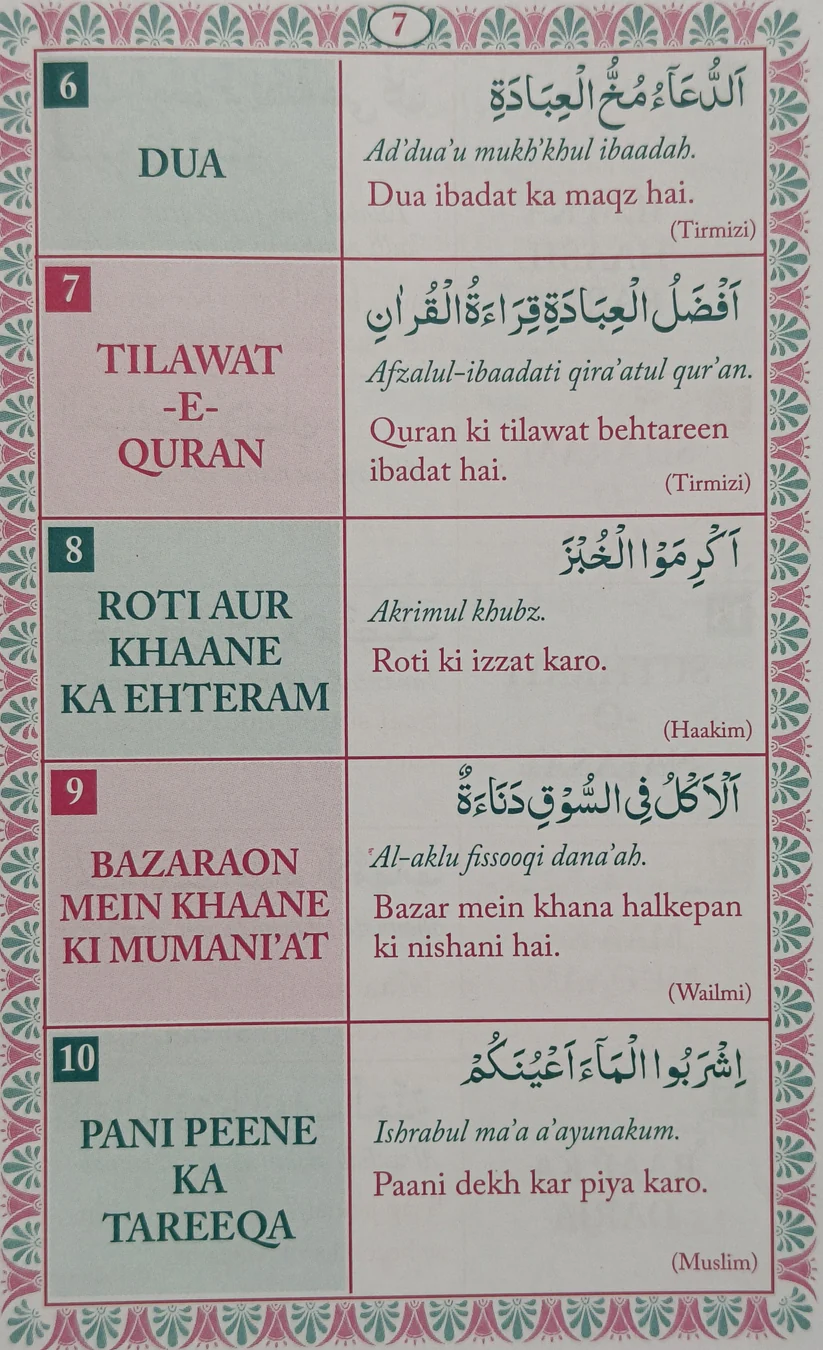 7
6
DUA
اَلدُّعَآءُ مُخُّ الْعِبَادَةِ
Ad'dua'u mukh'khul ibaadah.
Dua ibadat ka maqz hai.
(Tirmizi)
7
TILAWAT
-E-
QURAN
اَفْضَلُ الْعِبَادَةِ قِرَاءَةُ الْقُرْاٰنِ
Afzalul-ibaadati qira'atul qur'an.
Quran ki tilawat behtareen
ibadat hai.
(Tirmizi)
8
ROTI AUR
KHAANE
KA EHTERAM
اَكْرِمَوْا الْخُبْزَ
Akrimul khubz.
Roti ki izzat karo.
(Haakim)
9
BAZARAON
MEIN KHAANE
KI MUMANI'AT
اَلْاَكْلُ فِی السُّوْقِ دَنَاءَةٌ
Al-aklu fissooqi dana'ah.
Bazar mein khana halkepan
ki nishani hai.
(Wailmi)
10
PANI PEENE
KA
TAREEQA
اِشْرَبُوا الْمَآءَ اَعْيُنَكُمْ
Ishrabul ma'a a'ayunakum.
Paani dekh kar piya karo.
(Muslim)